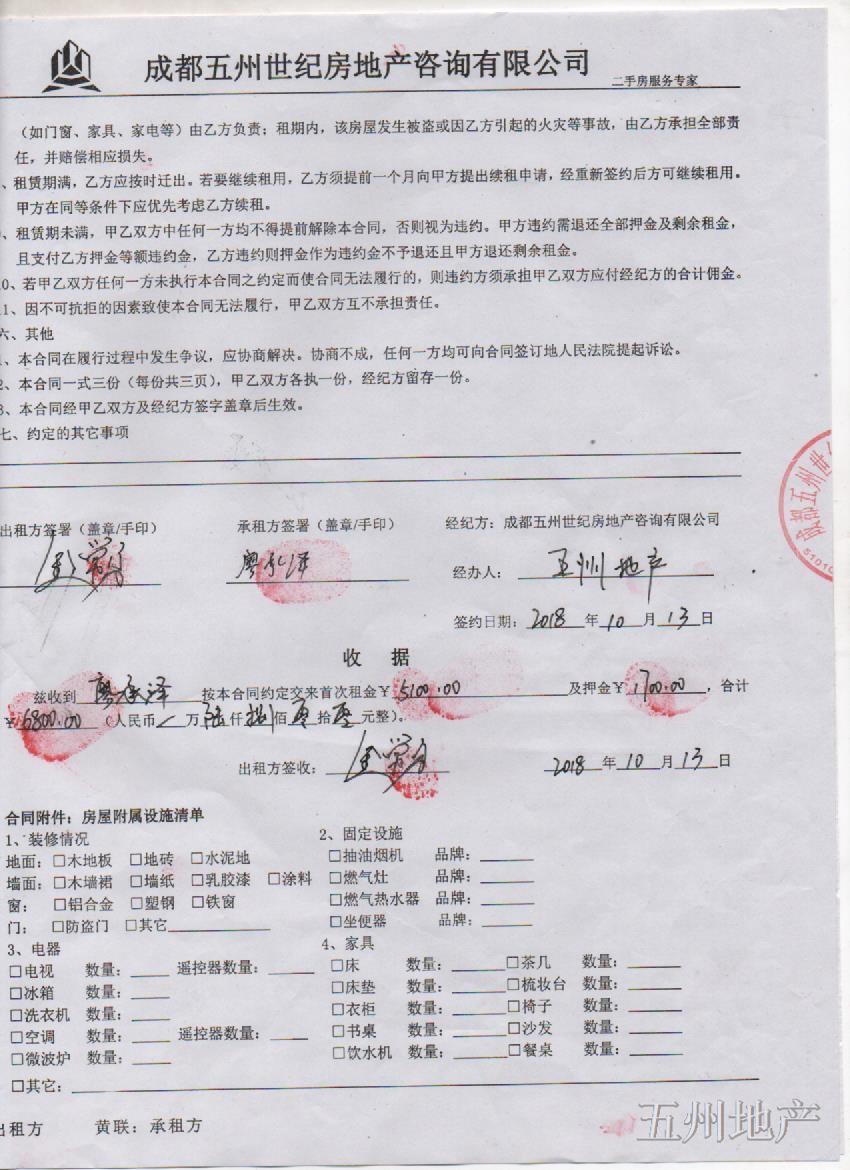 成都五州世纪房地产咨询有限公司 二手房服务专家
（如门窗、家具、家电等）由乙方负责；租期内，该房屋发生被盗或因乙方引起的火灾等事故，由乙方承担全部责
任，并赔偿相应损失。
、租赁期满，乙方应按时迁出。若要继续租用，乙方须提前一个月向甲方提出续租申请，经重新签约后方可继续租用。
甲方在同等条件下应优先考虑乙方续租。
、租赁期未满，甲乙双方中任何一方均不得提前解除本合同，否则视为违约。甲方违约需退还全部押金及剩余租金，
且支付乙方押金等额违约金，乙方违约则押金作为违约金不予退还且甲方退还剩余租金。
0、若甲乙双方任何一方未执行本合同之约定而使合同无法履行的，则违约方须承担甲乙双方应付经纪方的合计佣金。
1、因不可抗拒的因素致使本合同无法履行，甲乙双方互不承担责任。
六、其他
1、本合同在履行过程中发生争议，应协商解决。协商不成，任何一方均可向合同签订地人民法院提起诉讼。
2、本合同一式三份（每份共三页），甲乙双方各执一份，经纪方留存一份。
3、本合同经甲乙双方及经纪方签字盖章后生效。
七、约定的其它事项
成都五州世
5101
出租方签署（盖章/手印） 承租方签署（盖章/手印） 经纪方：成都五州世纪房地产咨询有限公司
廖承泽 经办人： 五州地产
签约日期：2018年10月13日
收 据
兹收到廖承泽按本合同约定交来首次租金￥5100.00及押金￥1700.00，合计
￥6800.00（人民币/万陆仟捌佰零拾零元整）。
出租方签收： 2018年10月13日
合同附件：房屋附属设施清单
1、装修情况 2、固定设施
地面：□木地板 □地砖 □水泥地 □抽油烟机 品牌：
墙面：□木墙裙 □墙纸 □乳胶漆 □涂料 □燃气灶 品牌：
窗： □铝合金 □塑钢 □铁窗 □燃气热水器 品牌：
门： □防盗门 □其它 □坐便器 品牌：
3、电器 4、家具
□电视 数量： 遥控器数量： □床 数量： □茶几 数量：
□冰箱 数量： □床垫 数量： □梳妆台 数量：
□洗衣机 数量： □衣柜 数量： □椅子 数量：
□空调 数量： 遥控器数量： □书桌 数量： □沙发 数量：
□微波炉 数量： □饮水机 数量： □餐桌 数量：
□其它：
出租方 黄联：承租方
五州地产